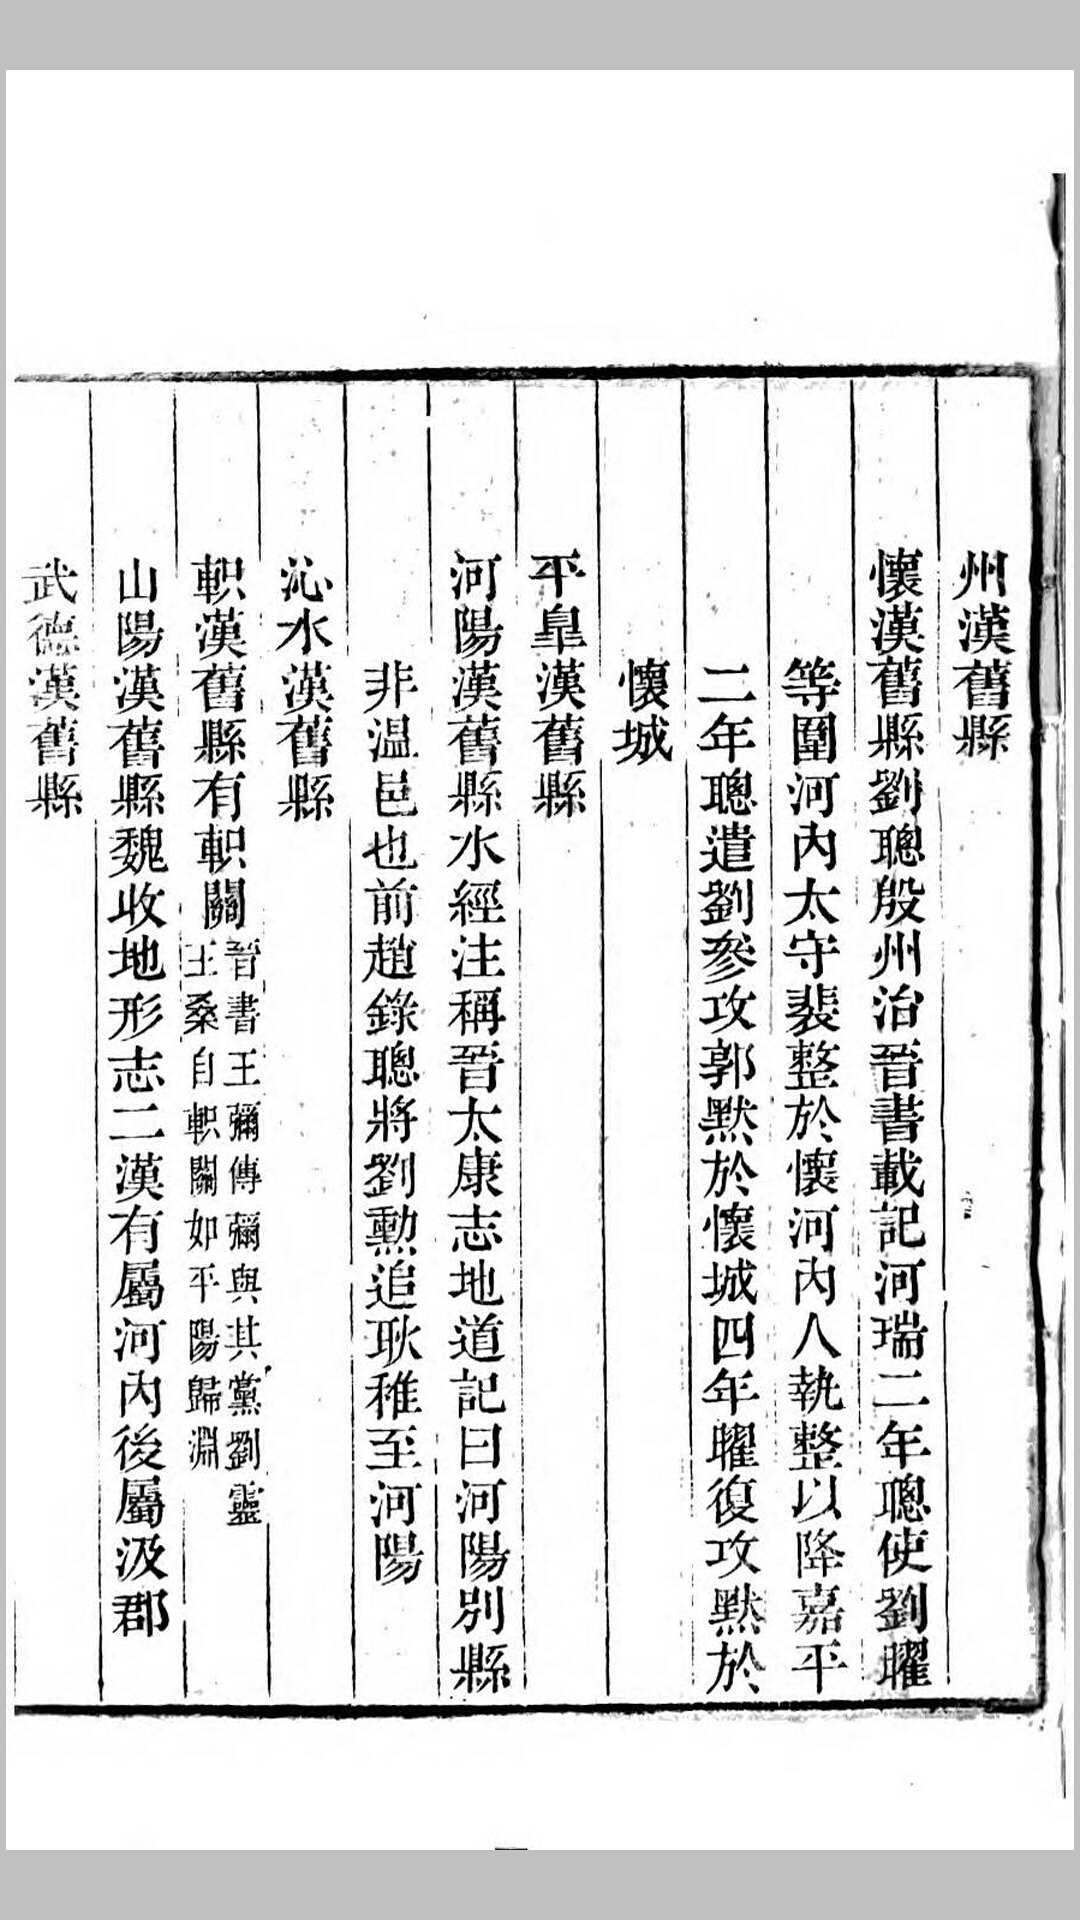 州漢舊縣
懷漢舊縣劉聰殷州治晉書載記河瑞二年聰使劉曜
等圍河內太守裴整於懷河內人執整以降嘉平
二年聰遣劉參攻郭默於懷城四年曜復攻默於
懷城
平臯漢舊縣
河陽漢舊縣水經注稱晉太康志地道記曰河陽別縣
非溫邑也前趙錄聰將劉勳追耿稚至河陽
沁水漢舊縣
軹漢舊縣有軹關晉書王彌傳彌與其黨劉靈
王桑自軹關如平陽歸淵
山陽漢舊縣魏收地形志二漢有屬河內後屬汲郡
武德漢舊縣